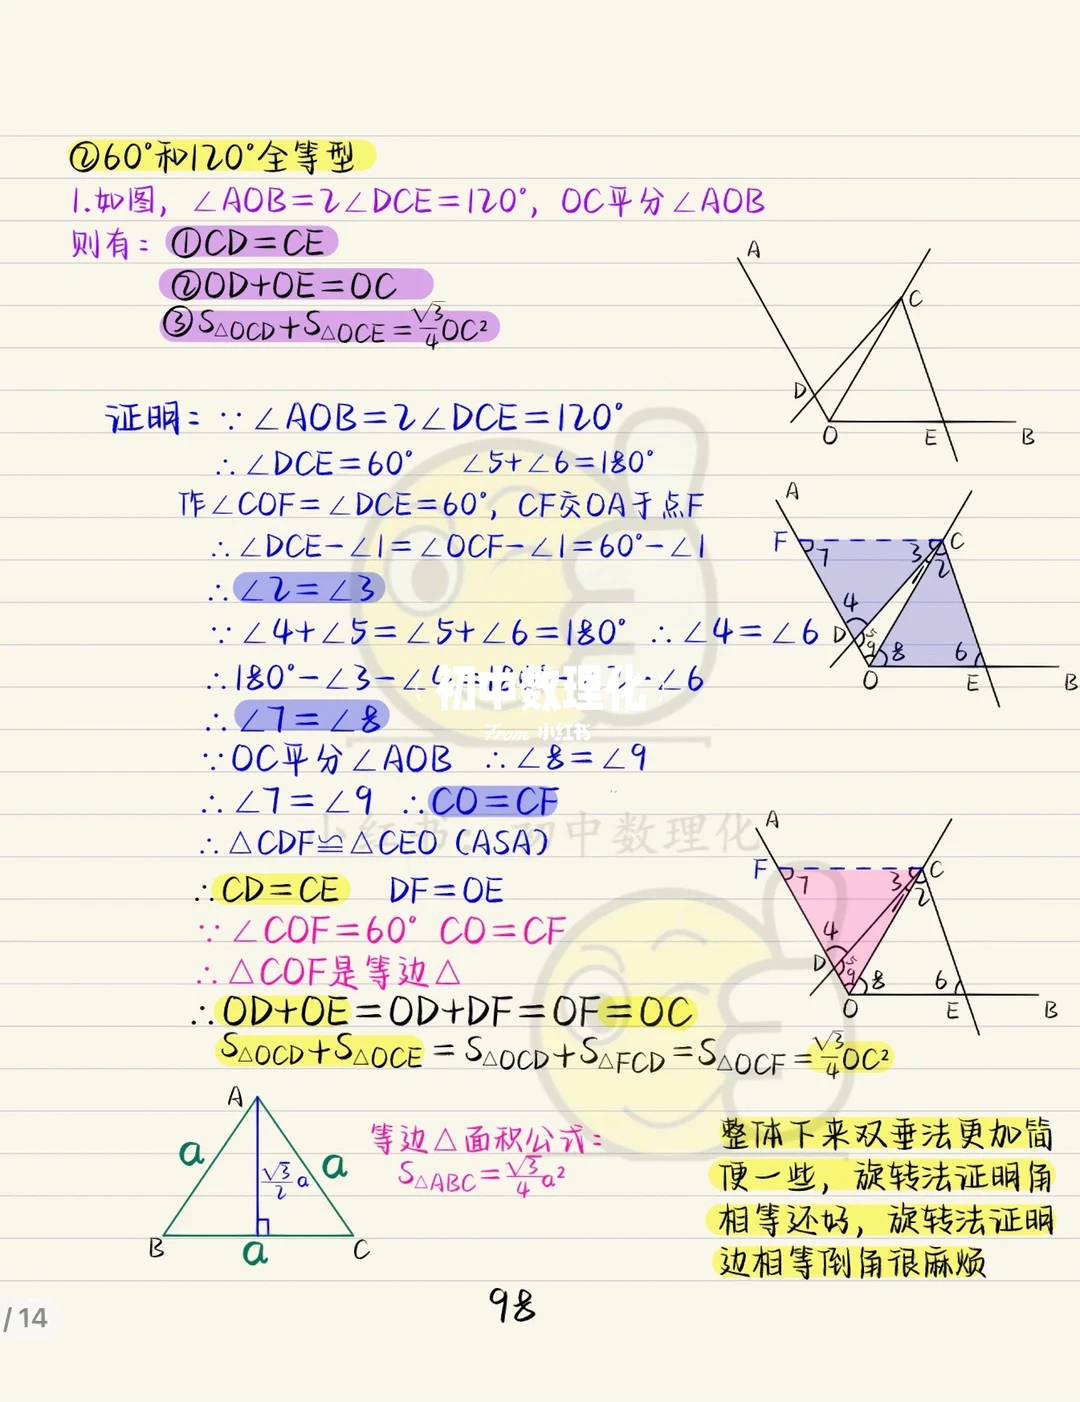 ②60°和120°全等型
1.如图，∠AOB=2∠DCE=120°，OC平分∠AOB
则有：①CD=CE
②OD+OE=OC
③S△OCD+S△OCE=√3/4OC²
A
C
D
O
E
B
证明：∵∠AOB=2∠DCE=120°
∴∠DCE=60° ∠5+∠6=180°
作∠COF=∠DCE=60°，CF交OA于点F
∴∠DCE-∠1=∠OCF-∠1=60°-∠1
∴∠2=∠3
∵∠4+∠5=∠5+∠6=180° ∴∠4=∠6
∴180°-∠3-∠4 -∠6
初中数理化
From 小红书
∴∠7=∠8
∵OC平分∠AOB ∴∠8=∠9
∴∠7=∠9 ∴CO=CF
小红书：初中数理化
∴△CDF≌△CEO（ASA）
∴CD=CE DF=OE
∵∠COF=60° CO=CF
∴△COF是等边△
∴OD+OE=OD+DF=OF=OC
S△OCD+S△OCE=S△OCD+S△FCD=S△OCF=√3/4OC²
A
F 7 3 C
2
4
D 5
9 8 6
O E B
A
F 7 3 C
2
4
D 5
9 8 6
O E B
A
a √3/2a a
B a C
等边△面积公式：
S△ABC=√3/4a²
整体下来双垂法更加简
便一些，旋转法证明角
相等还好，旋转法证明
边相等倒角很麻烦
98
/14